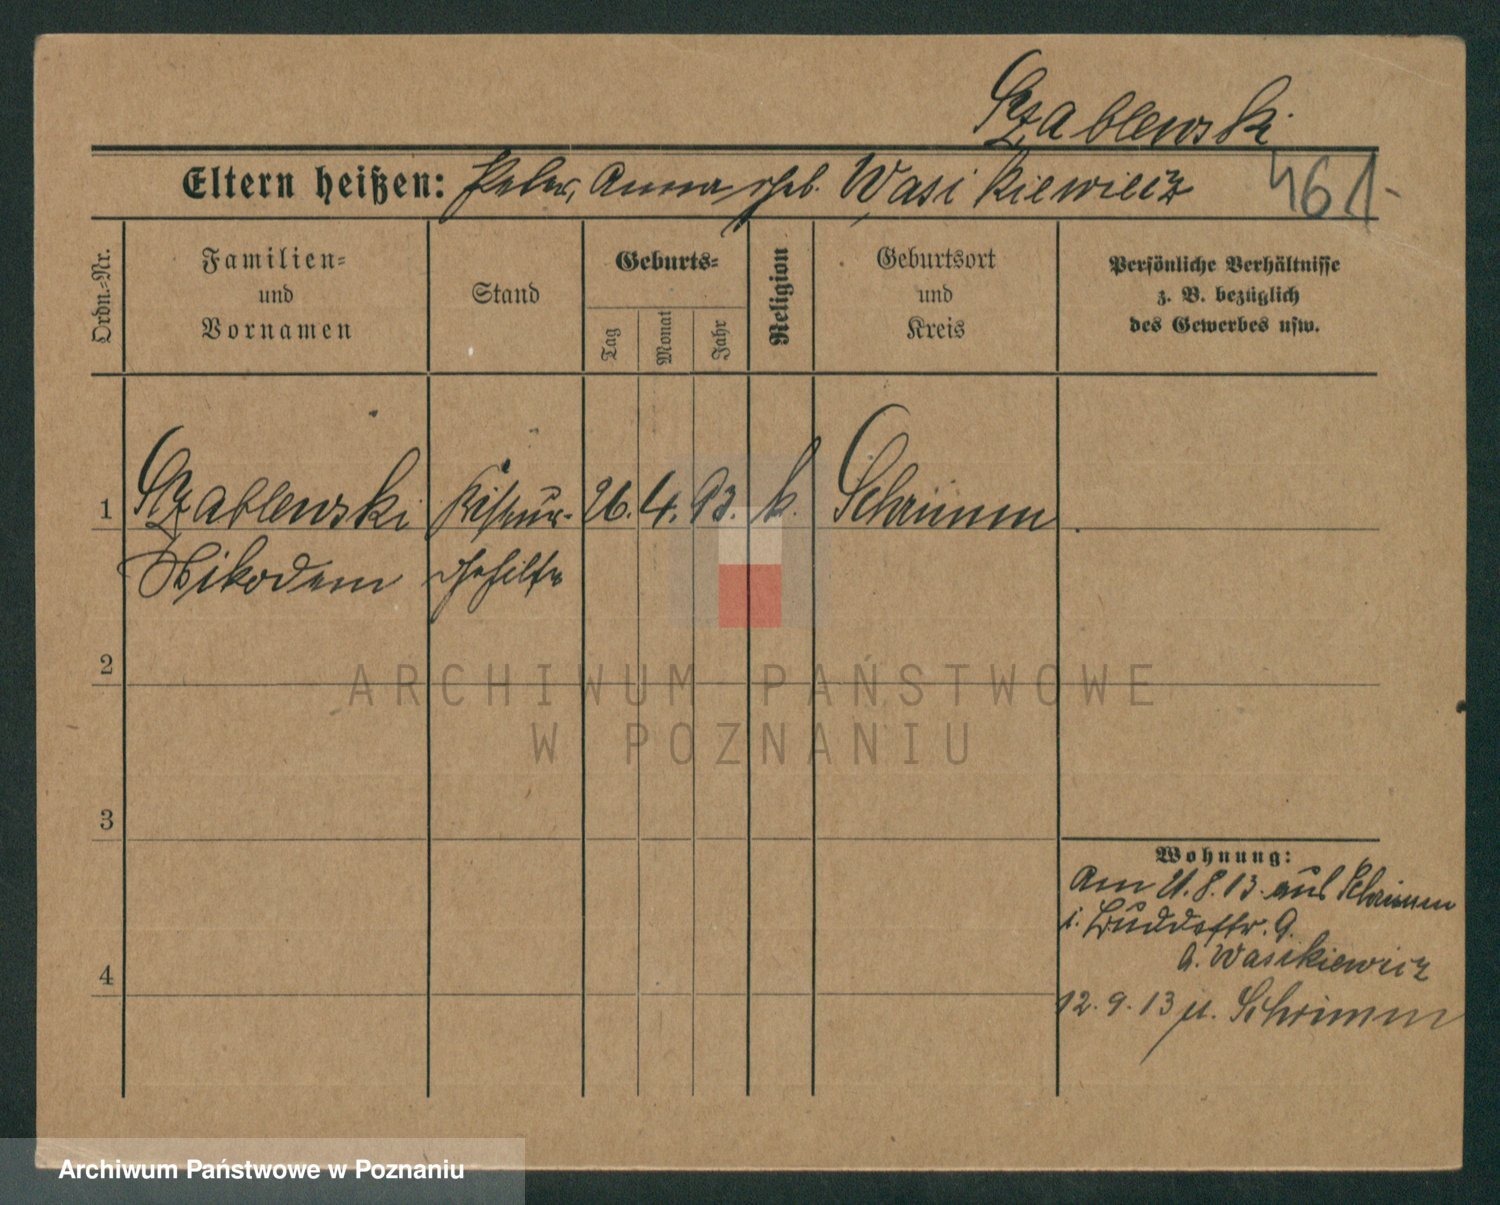 Szablewski
Eltern heißen: Peter, Anna geb. Wasikiewicz
461
Ordn.-Nr.
Familien-
und
Vornamen
Stand
Geburts-
Tag
Monat
Jahr
Religion
Geburtsort
und
Kreis
Persönliche Verhältnisse
z. B. bezüglich
des Gewerbes usw.
1 Szablewski Friseur- 26. 4. 93. k. Schrimm
Nikodem gehilfe
2
ARCHIWUM PAŃSTWOWE
W POZNANIU
3
Wohnung:
Am 21.8.13. aus Schrimm
i. Buddestr. 9.
a. Wasikiewicz
4
12.9.13 n. Schrimm
Archiwum Państwowe w Poznaniu